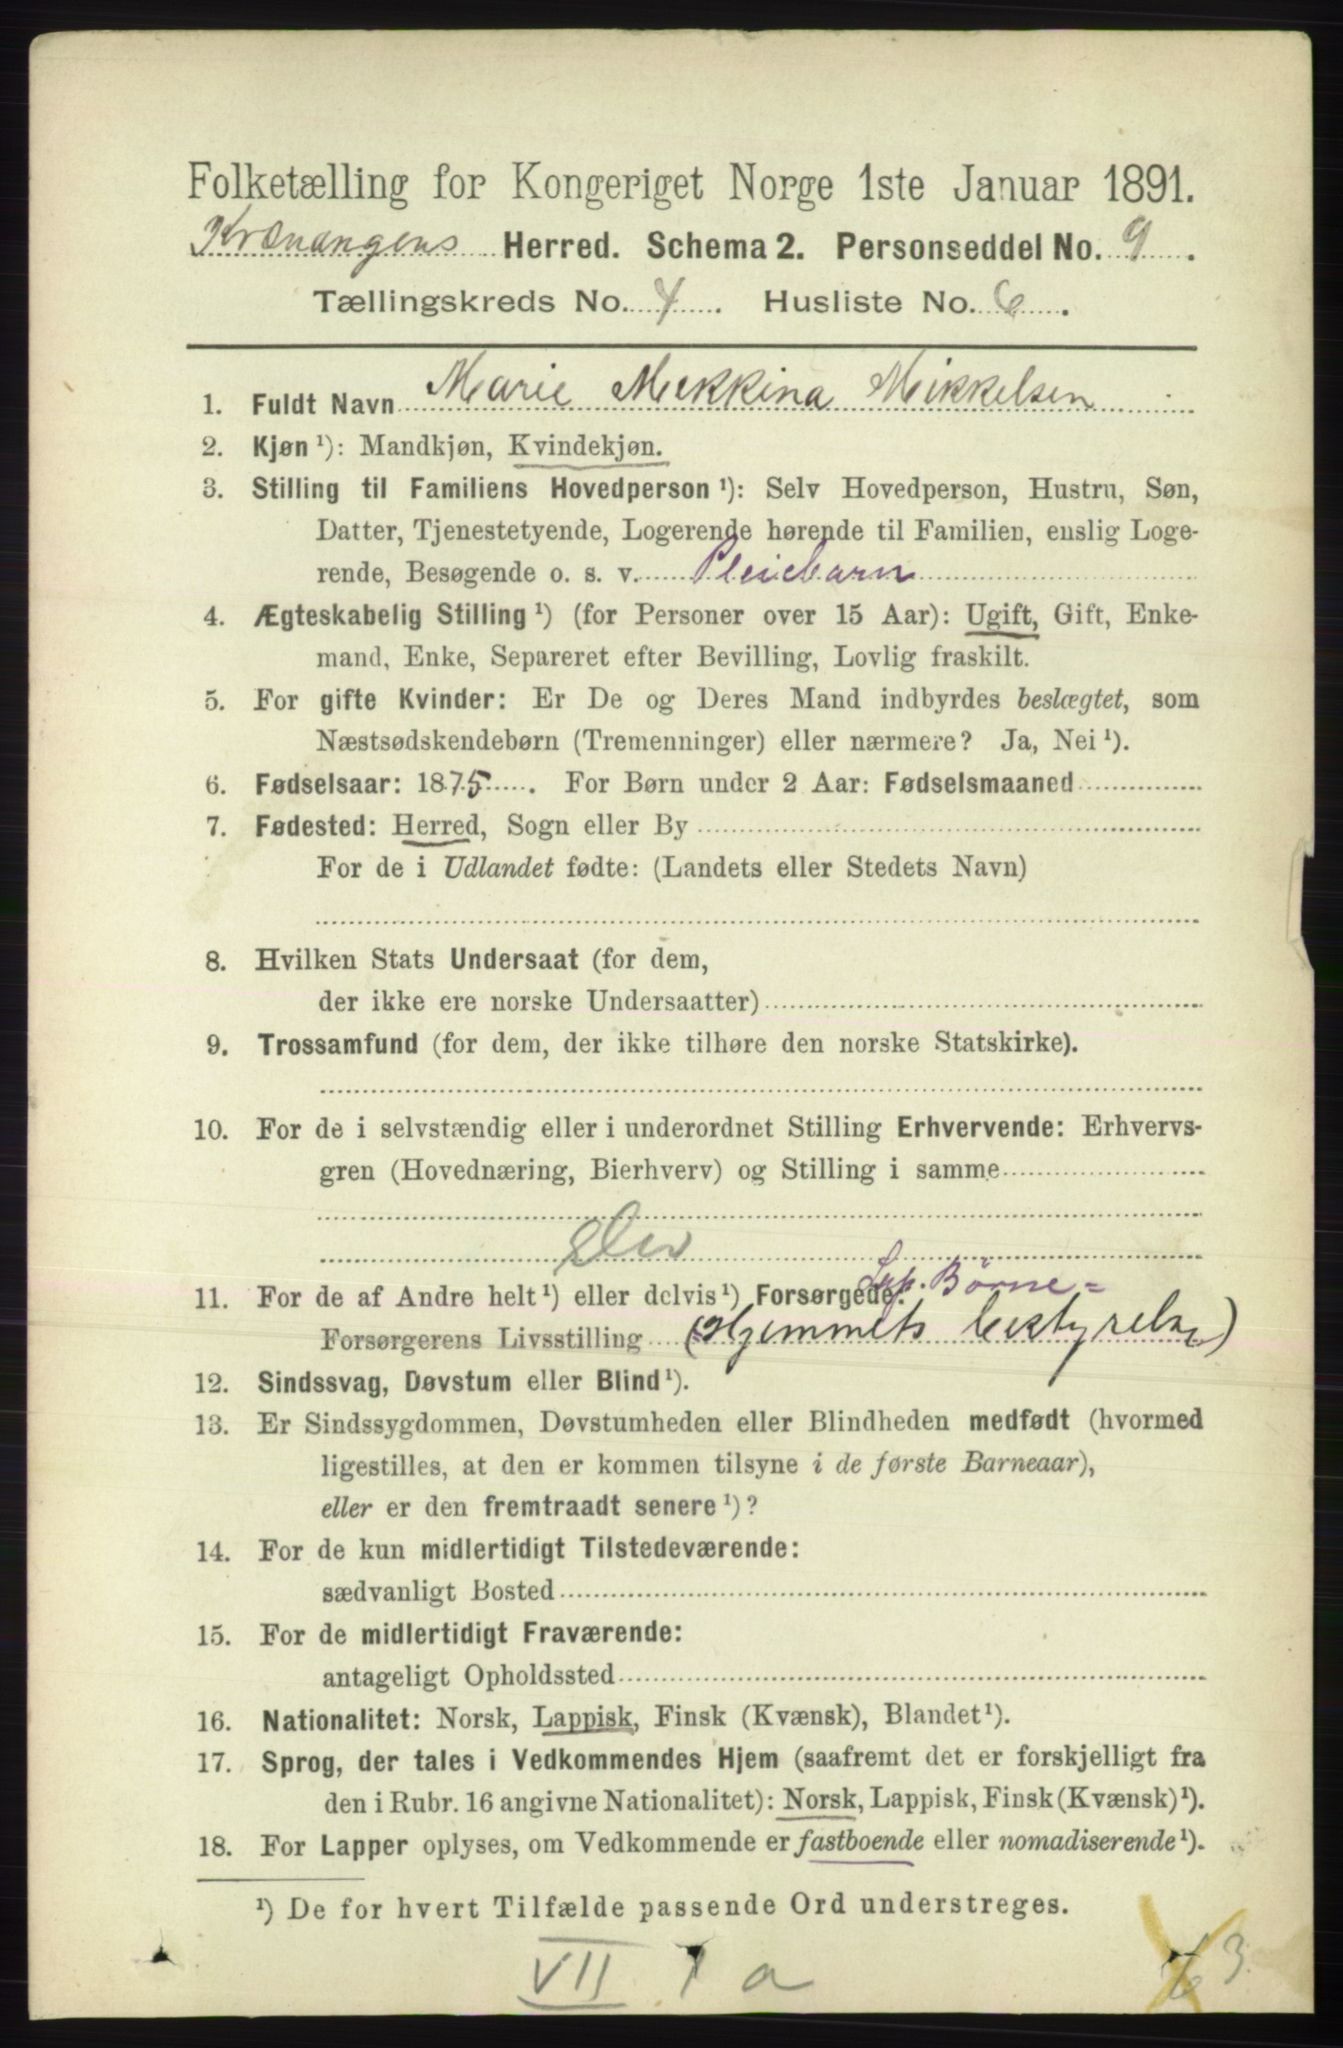 Folketælling for Kongeriget Norge 1ste Januar 1891.
Kvænangens Herred. Schema 2. Personseddel No. 9.
Tællingskreds No. 4. Husliste No. 6.
1. Fuldt Navn Marie Mekkina Mikkelsen
2. Kjøn ¹): Mandkjøn, Kvindekjøn.
3. Stilling til Familiens Hovedperson ¹): Selv Hovedperson, Hustru, Søn,
Datter, Tjenestetyende, Logerende hørende til Familien, enslig Loge-
rende, Besøgende o. s. v. Pleiebarn
4. Ægteskabelig Stilling ¹) (for Personer over 15 Aar): Ugift, Gift, Enke-
mand, Enke, Separeret efter Bevilling, Lovlig fraskilt.
5. For gifte Kvinder: Er De og Deres Mand indbyrdes beslægtet, som
Næstsødskendebørn (Tremenninger) eller nærmere? Ja, Nei ¹).
6. Fødselsaar: 1875. For Børn under 2 Aar: Fødselsmaaned
7. Fødested: Herred, Sogn eller By
For de i Udlandet fødte: (Landets eller Stedets Navn)
8. Hvilken Stats Undersaat (for dem,
der ikke ere norske Undersaatter)
9. Trossamfund (for dem, der ikke tilhøre den norske Statskirke).
10. For de i selvstændig eller i underordnet Stilling Erhvervende: Erhvervs-
gren (Hovednæring, Bierhverv) og Stilling i samme
Elev
11. For de af Andre helt ¹) eller delvis ¹) Forsørgede: Lap. Børne-
Forsørgerens Livsstilling (Hjemmets bestyrelse)
12. Sindssvag, Døvstum eller Blind ¹).
13. Er Sindssygdommen, Døvstumheden eller Blindheden medfødt (hvormed
ligestilles, at den er kommen tilsyne i de første Barneaar),
eller er den fremtraadt senere ¹)?
14. For de kun midlertidigt Tilstedeværende:
sædvanligt Bosted
15. For de midlertidigt Fraværende:
antageligt Opholdssted
16. Nationalitet: Norsk, Lappisk, Finsk (Kvænsk), Blandet ¹).
17. Sprog, der tales i Vedkommendes Hjem (saafremt det er forskjelligt fra
den i Rubr. 16 angivne Nationalitet): Norsk, Lappisk, Finsk (Kvænsk) ¹).
18. For Lapper oplyses, om Vedkommende er fastboende eller nomadiserende ¹).
¹) De for hvert Tilfælde passende Ord understreges.
VII 1 a